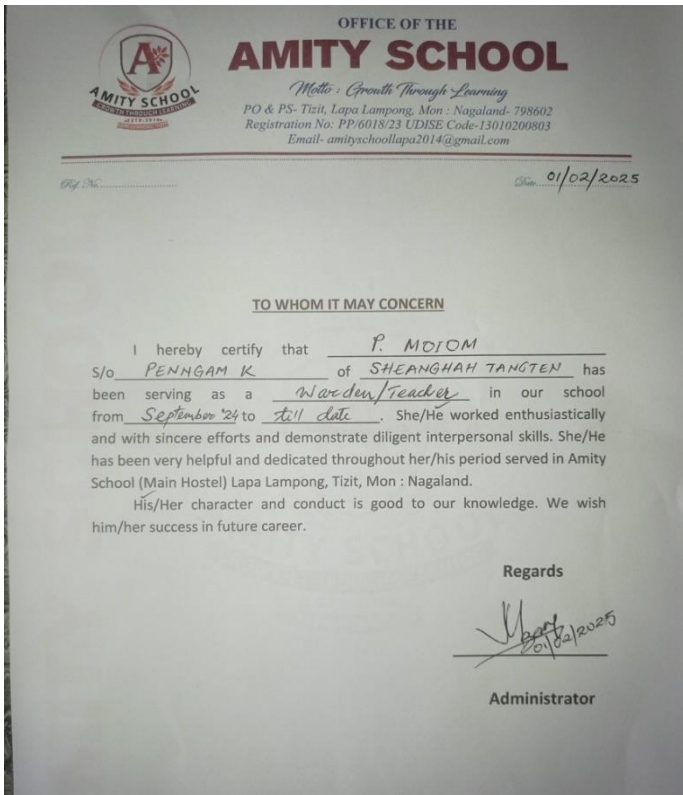 OFFICE OF THE
AMITY SCHOOL
Motto : Growth Through Learning
PO & PS- Tizit, Lapa Lampong, Mon : Nagaland- 798602
Registration No: PP/6018/23 UDISE Code-13010200803
Email- amityschoollapa2014@gmail.com
A
AMITY SCHOOL
GROWTH THROUGH LEARNING
Ref. No...........................
Date.... 01/02/2025
TO WHOM IT MAY CONCERN
I hereby certify that P. MOIOM
S/o PENNGAM K of SHEANGHAH TANGTEN has
been serving as a Warden/Teacher in our school
from September '24 to till date . She/He worked enthusiastically
and with sincere efforts and demonstrate diligent interpersonal skills. She/He
has been very helpful and dedicated throughout her/his period served in Amity
School (Main Hostel) Lapa Lampong, Tizit, Mon : Nagaland.
His/Her character and conduct is good to our knowledge. We wish
him/her success in future career.
Regards
01/02/2025
Administrator